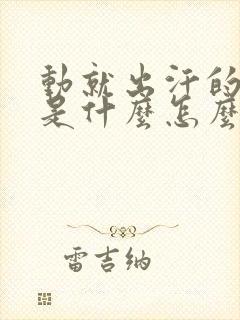 動就出汗的
是什麼怎麼
雷吉纳